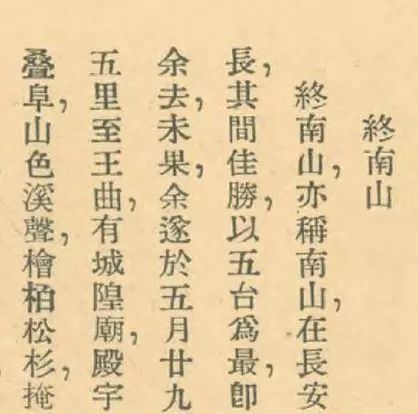 終南山
終南山，亦稱南山，在長安
長，其間佳勝，以五台爲最，卽
余去，未果，余遂於五月廿九
五里至王曲，有城隍廟，殿宇
叠阜，山色溪聲，檜柏松杉，掩